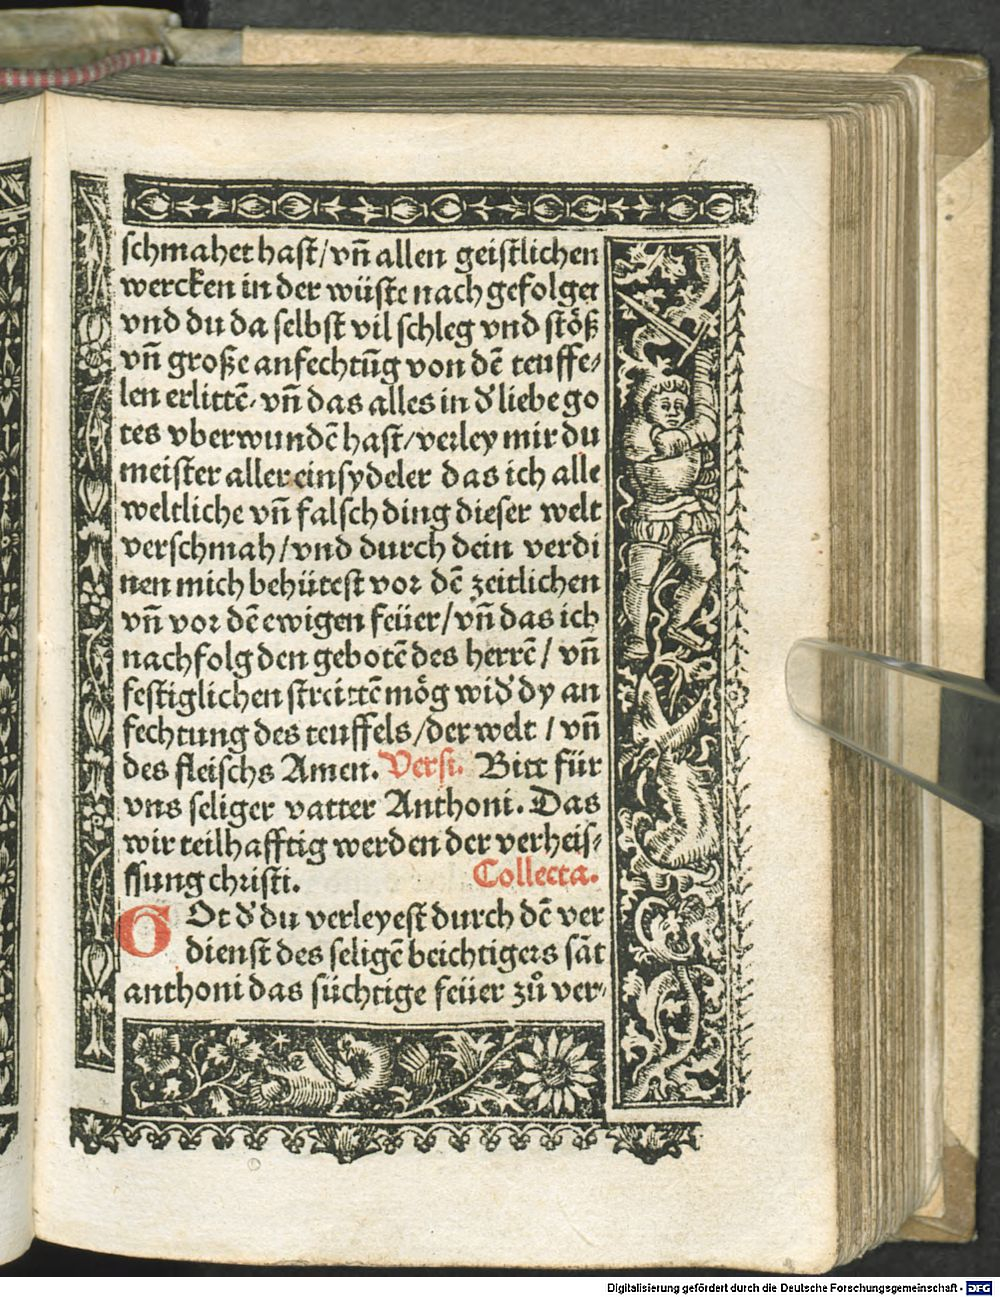 schmahet hast/vn̄ allen geistlichen
wercken in der wüste nach gefolget
vnd du da selbst vil schleg vnd stöß
vn̄ große anfechtūg von dē teuffe⸗
len erlittē. vn̄ das alles in d' liebe go
tes vberwundē hast/verley mir du
meister aller einsydeler das ich alle
weltliche vn̄ falsch ding dieser welt
verschmah/vnd durch dein verdi
nen mich behütest vor dē zeitlichen
vn̄ vor dē ewigen feüer/vn̄ das ich
nachfolg den gebotē des herrē/ vn̄
festiglichen streittē mög wid' dy an
fechtung des teuffels/der welt / vn̄
des fleischs Amen. Versi. Bitt für
vns seliger vatter Anthoni. Das
wir teilhafftig werden der verheis⸗
ssung christi. Collecta.
GOt d' du verleyest durch dē ver
dienst des seligē beichtigers sāt
anthoni das süchtige feüer zů ver⸗
Digitalisierung gefördert durch die Deutsche Forschungsgemeinschaft - DFG